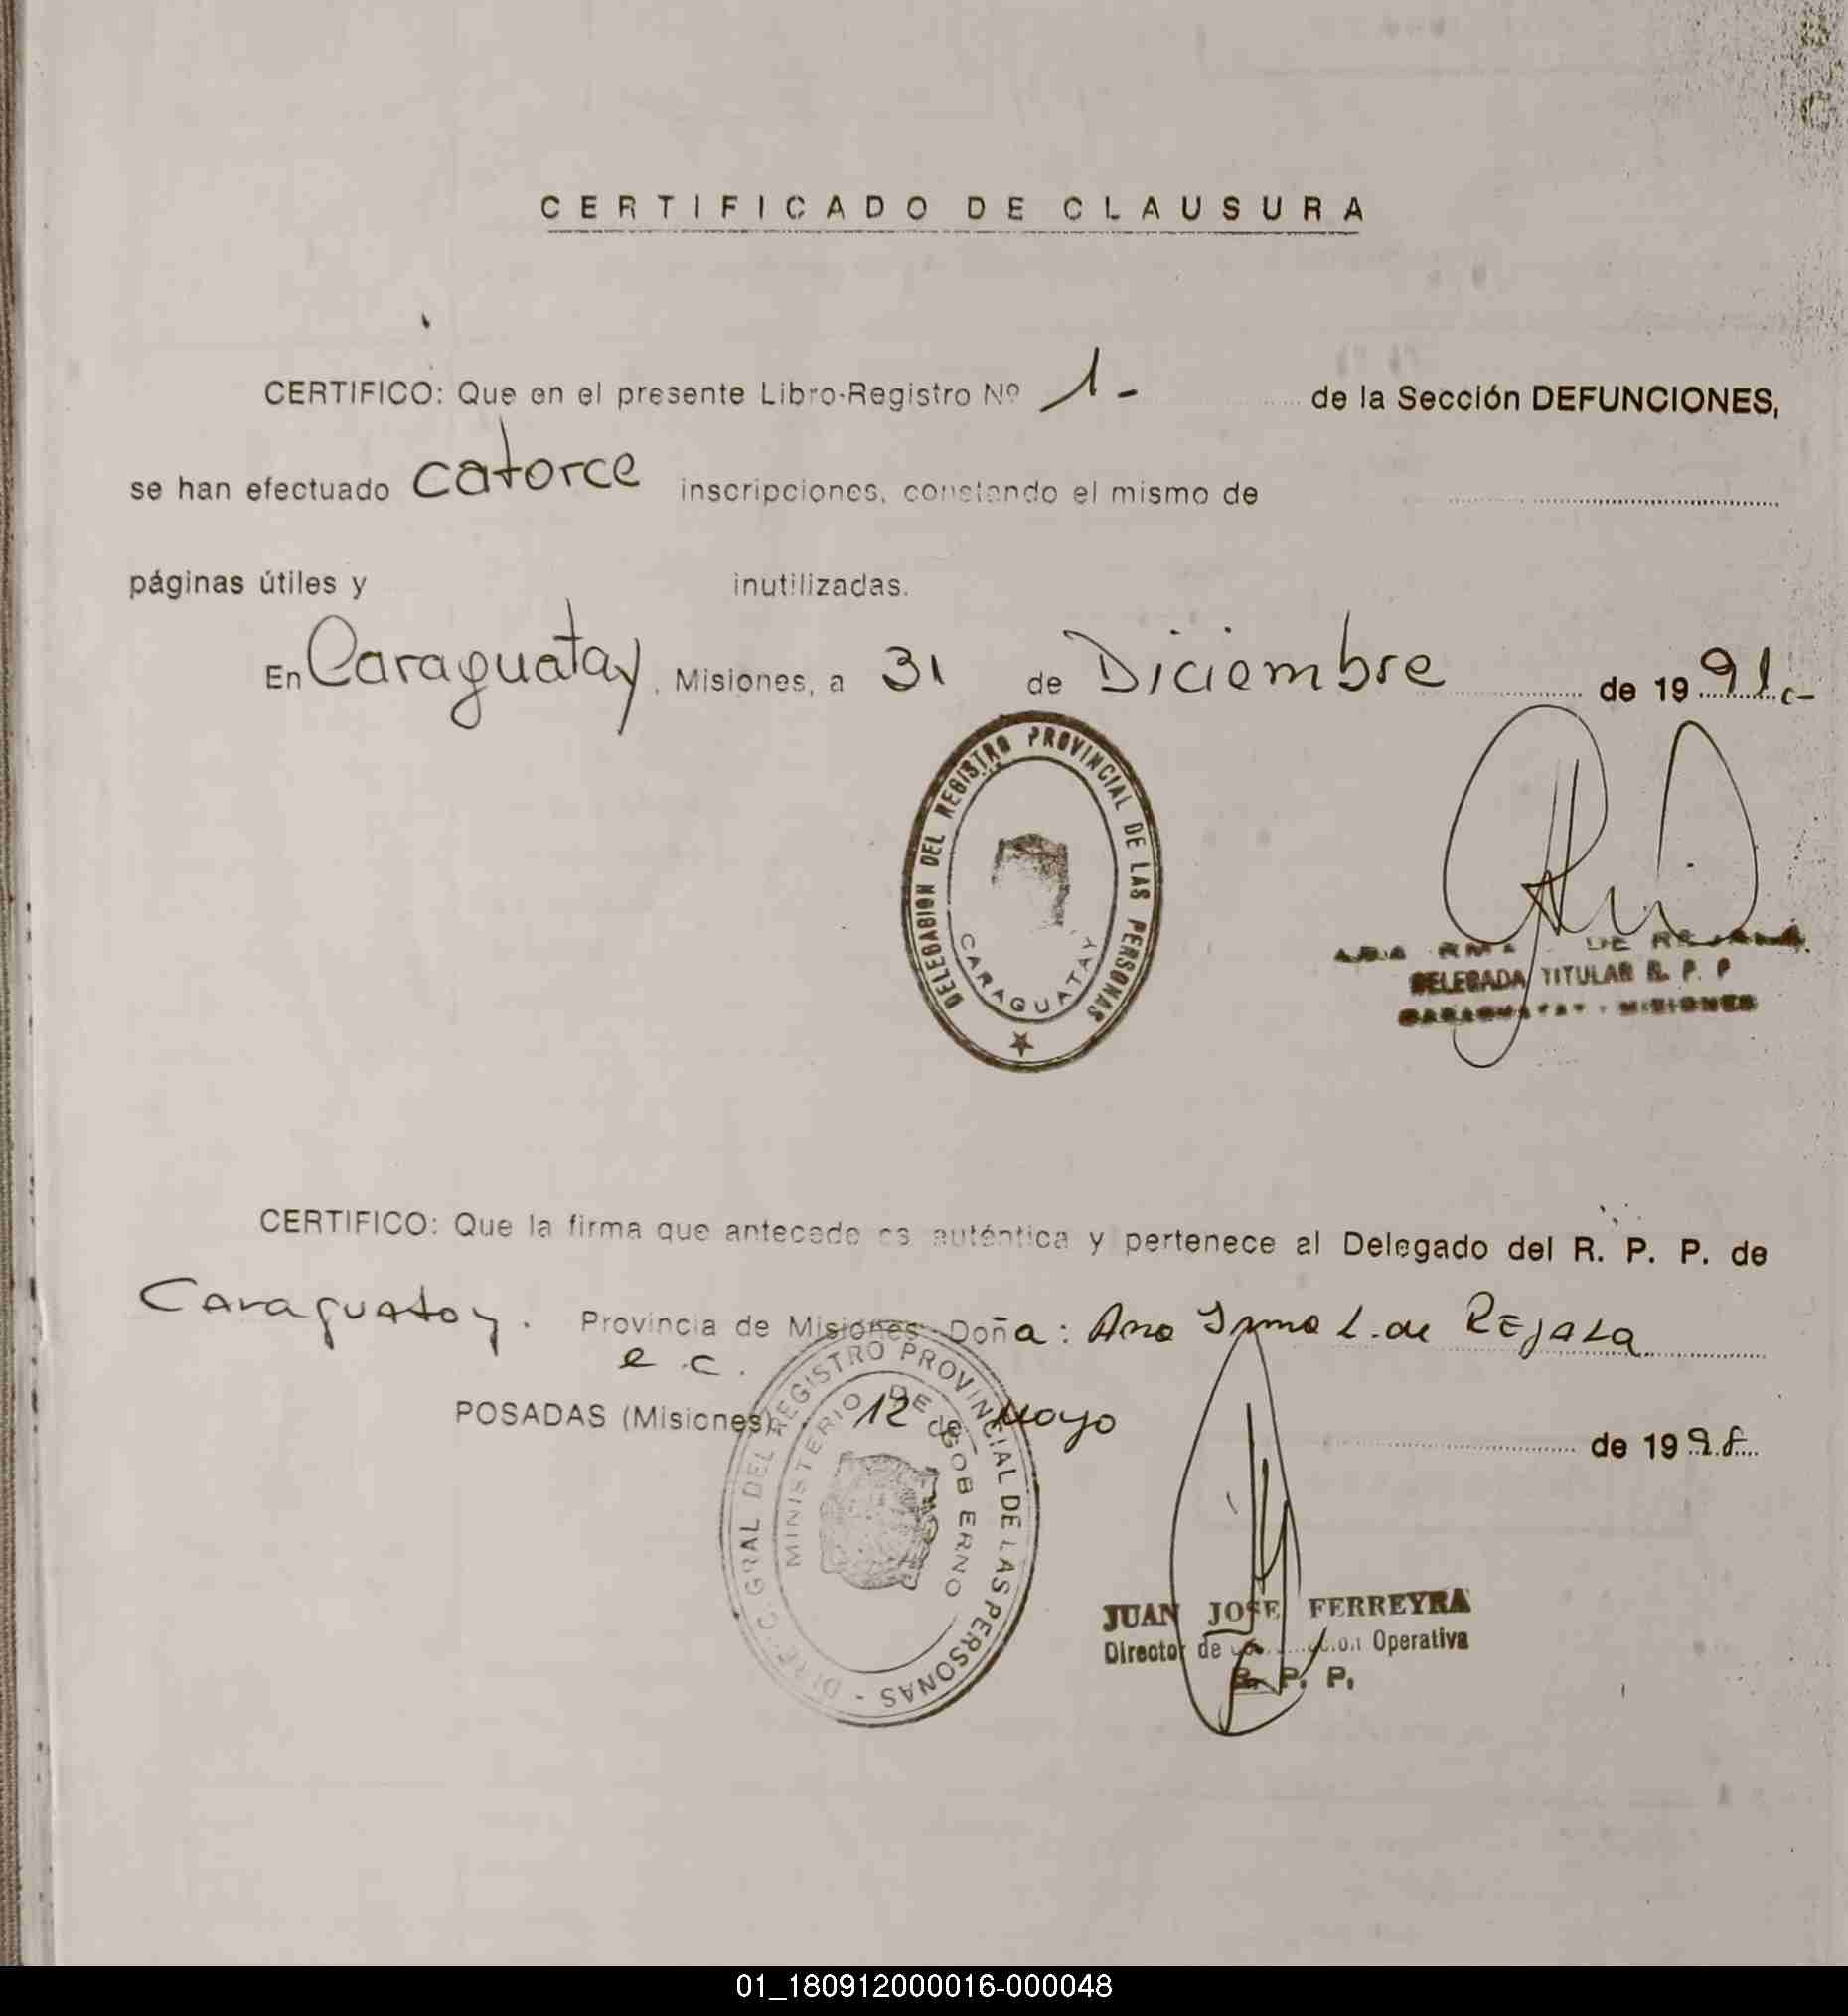 CERTIFICADO DE CLAUSURA
CERTIFICO: Que en el presente Libro-Registro Nº 1- de la Sección DEFUNCIONES,
se han efectuado catorce inscripciones, constando el mismo de
páginas útiles y inutilizadas.
En Caraguatay, Misiones, a 31 de Diciembre de 1991.-
DELEGACION DEL REGISTRO PROVINCIAL DE LAS PERSONAS
CARAGUATAY
DE REJALA
DELEGADA TITULAR R. P. P
CARAGUATAY - MISIONES
CERTIFICO: Que la firma que antecede es auténtica y pertenece al Delegado del R. P. P. de
Caraguatay. Provincia de Misiones Doña: Ana Irma L. de REJALA
e.c.
POSADAS (Misiones), 12 de Mayo de 1998
DIREC. GRAL DEL REGISTRO PROVINCIAL DE LAS PERSONAS -
MINISTERIO DE GOBIERNO
JUAN JOSE FERREYRA
Director de Operativa
R. P. P.
01_180912000016-000048